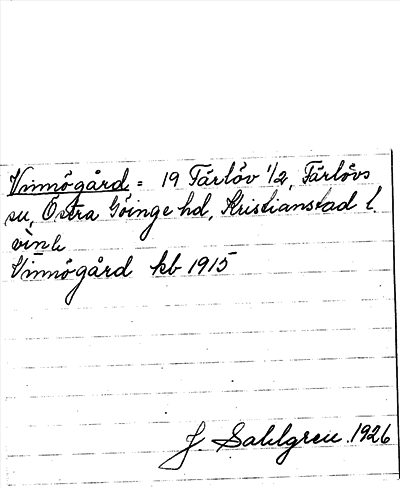 Vinnögård = 19 Färlöv 1/2, Färlövs
sn, Östra Göinge hd, Kristianstad l.
Vinnögård kb 1915
J. Sahlgren. 1926